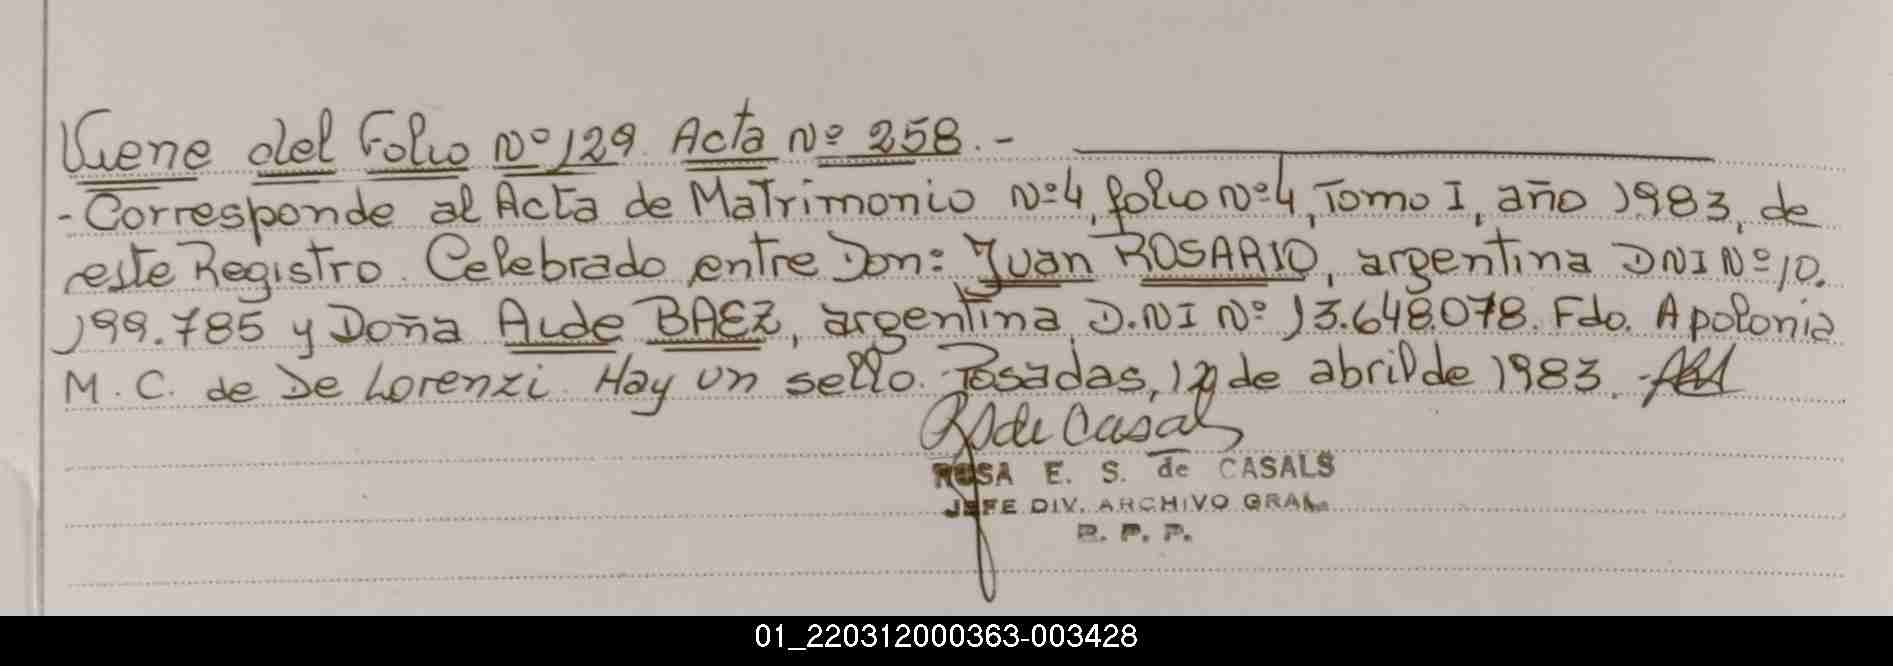 Viene del Folio Nº 129. Acta Nº 258.-
-Corresponde al Acta de Matrimonio Nº4, folio Nº4, Tomo I, año 1983, de
este Registro. Celebrado entre Don: Juan ROSARIO, argentina DNI Nº 10.
199.785 y Doña Aide BAEZ, argentina D.NI Nº 13.648.078. Fdo. Apolonia
M. C. de De Lorenzi. Hay un sello. Posadas, de abril de 1983.-
de Casals
ROSA E. S. de CASALS
JEFE DIV. ARCHIVO GRAL.
R. P. P.
01_220312000363-003428